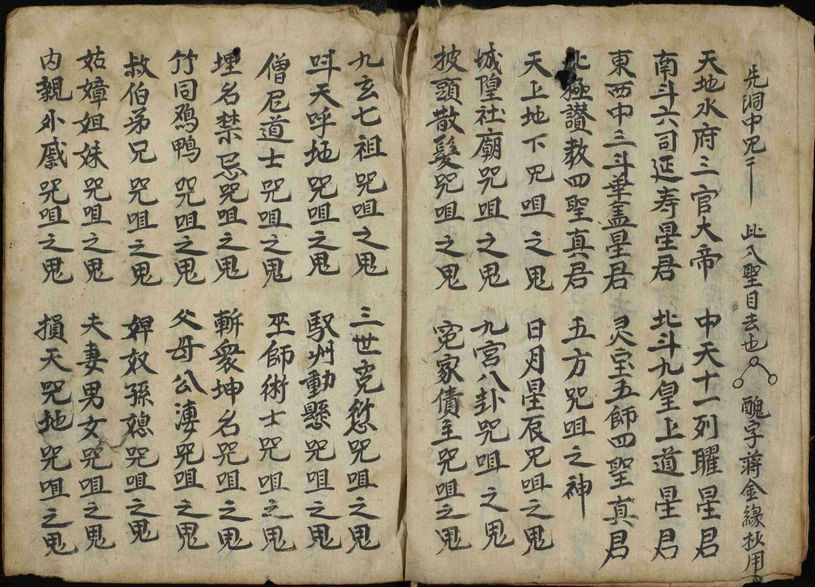 先洞中咒 此入聖目去也 醜字蔣金緣抄用
天地水府三官大帝 中天十一列曜星君
南斗六司延寿星君 北斗九皇上道星君
東西中三斗華盖星君 灵宝五師四聖真君
北極讃教四聖真君 五方咒咀之神
天上地下咒咀之鬼 日月星辰咒咀之鬼
城隍社廟咒咀之鬼 九宮八卦咒咀之鬼
披頭散髮咒咀之鬼 寃家債主咒咀之鬼
九玄七祖咒咀之鬼 三世寃愆咒咀之鬼
呌天呼地咒咀之鬼 馭州動懸咒咀之鬼
僧尼道士咒咀之鬼 巫師術士咒咀之鬼
埋名禁忌咒咀之鬼 斬衆坤名咒咀之鬼
竹同鸡鴨咒咀之鬼 父母公咒咀之鬼
叔伯弟兄咒咀之鬼 婢奴孫媳咒咀之鬼
姑嫜姐妹咒咀之鬼 夫妻男女咒咀之鬼
内親外戚咒咀之鬼 損天咒地咒咀之鬼